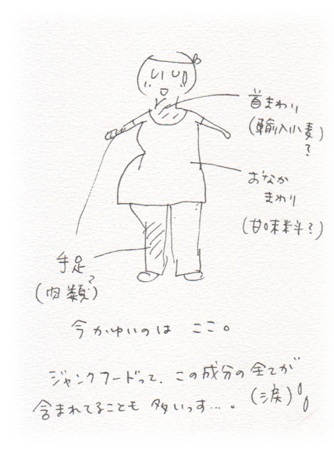 首まわり
(輸入小麦)
?
おなか
まわり
(甘味料?)
手足
(肉類?)
今かゆいのは ここ。
ジャンクフードって、この成分の全てが
含まれてることも 多いっす…。(涙)